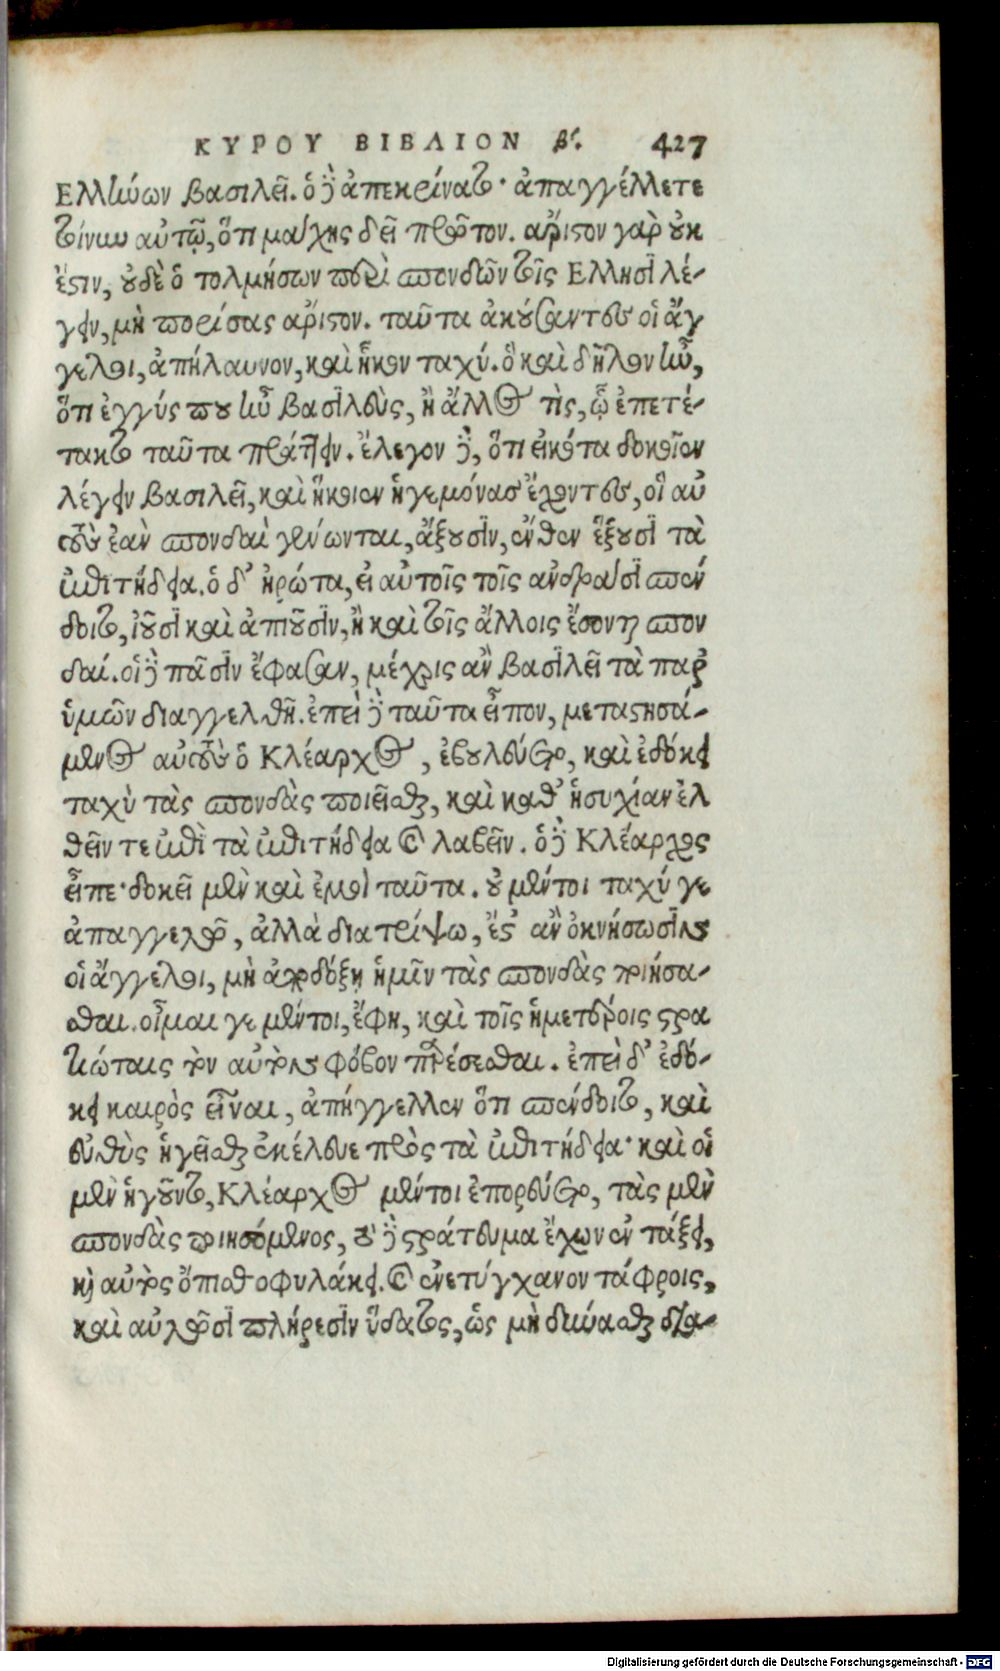 ΚΥΡΟΥ ΒΙΒΛΙΟΝ β′. 427
Ελλήνων βασιλεῖ. ὁ δὲ ἀπεκρίνατο· ἀπαγγέλλετε
τοίνυν αὐτῷ, ὅτι μάχης δεῖ πρῶτον. ἄριστον γὰρ οὐκ
ἔστιν, οὐδὲ ὁ τολμήσων περὶ σπονδῶν τοῖς Ελλησὶ λέ-
γειν, μὴ πορίσας ἄριστον. ταῦτα ἀκούσαντες οἱ ἄγ
γελοι, ἀπήλαυνον, καὶ ἧκον ταχύ. ὃ καὶ δῆλον ἦν,
ὅτι ἐγγύς που ἦν βασιλεὺς, ἢ ἄλλος τὶς, ᾧ ἐπετέ-
τακτο ταῦτα πράττειν. ἔλεγον δὲ, ὅτι εἰκότα δοκοῖεν
λέγειν βασιλεῖ, καὶ ἥκοιεν ἡγεμόνας ἔχοντες, οἳ αὐ
τοὺς ἐὰν σπονδαὶ γένωνται, ἄξουσιν, ἔνθεν ἕξουσι τὰ
ἐπιτήδεια. ὁ δ' ἠρώτα, εἰ αὐτοῖς τοῖς ἀνδράσι σπέν
δοιτο, ἰοῦσι καὶ ἀπιοῦσιν, ἢ καὶ τοῖς ἄλλοις ἔσοιντο σπον
δαί. οἱ δὲ πᾶσιν ἔφασαν, μέχρις ἂν βασιλεῖ τὰ παρ'
ὑμῶν διαγγελθῇ. ἐπεὶ δὲ ταῦτα εἶπον, μεταστησά-
μενος αὐτοὺς ὁ Κλέαρχος, ἐβουλεύετο, καὶ ἐδόκει
ταχὺ τὰς σπονδὰς ποιεῖσθαι, καὶ καθ' ἡσυχίαν ἐλ
θεῖν τε ἐπὶ τὰ ἐπιτήδεια καὶ λαβεῖν. ὁ δὲ Κλέαρχος
εἶπε· δοκεῖ μὲν καὶ ἐμοὶ ταῦτα. οὐ μέντοι ταχύ γε
ἀπαγγελῶ, ἀλλὰ διατρίψω, ἔς τ' ἂν ὀκνήσωσιν
οἱ ἄγγελοι, μὴ ἀποδόξῃ ἡμῖν τὰς σπονδὰς ποιήσα-
σθαι. οἶμαι γε μέντοι, ἔφη, καὶ τοῖς ἡμετέροις στρα
τιώταις τὸν αὐτὸν φόβον παρέσεσθαι. ἐπεὶ δ' ἐδό-
κει καιρὸς εἶναι, ἀπήγγελλεν ὅτι σπένδοιτο, καὶ
εὐθὺς ἡγεῖσθαι ἐκέλευε πρὸς τὰ ἐπιτήδεια· καὶ οἱ
μὲν ἡγοῦντο, Κλέαρχος μέντοι ἐπορεύετο, τὰς μὲν
σπονδὰς ποιησόμενος, τὸ δὲ στράτευμα ἔχων ἐν τάξει,
καὶ αὐτὸς ὀπισθοφυλάκει. καὶ ἐνετύγχανον τάφροις,
καὶ αὐλῶσι πλήρεσιν ὕδατος, ὡς μὴ δύνασθαι δια-
Digitalisierung gefördert durch die Deutsche Forschungsgemeinschaft - DFG